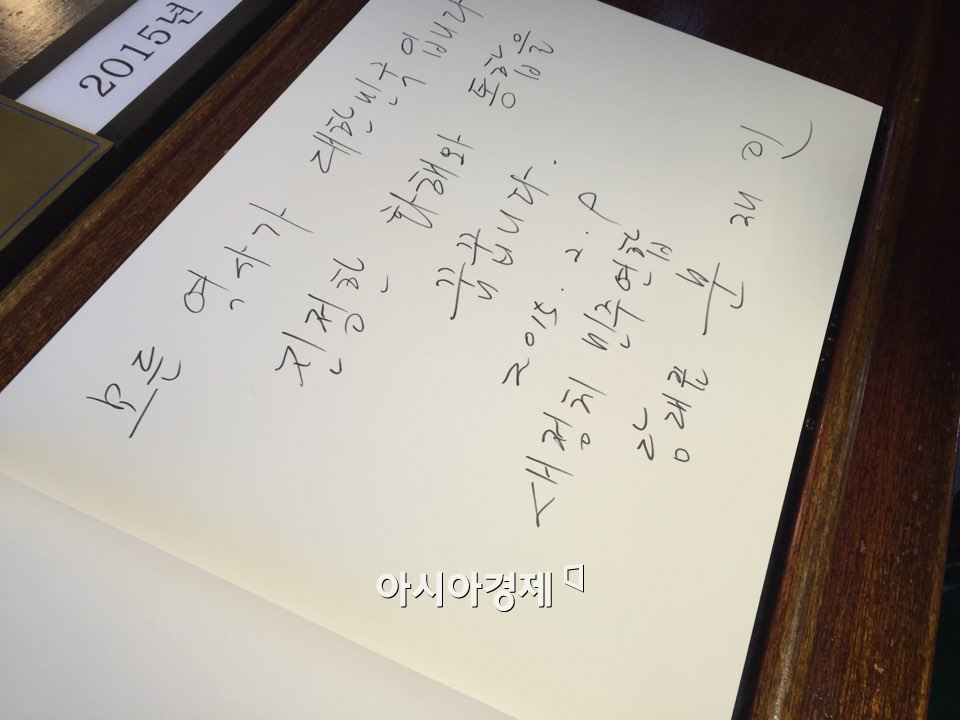 2015년
모든 역사가 대한민국입니다
진정한 화해와 통합을
꿈꿉니다.
2015. 2. 9
새정치민주연합
당대표 문재인
아시아경제